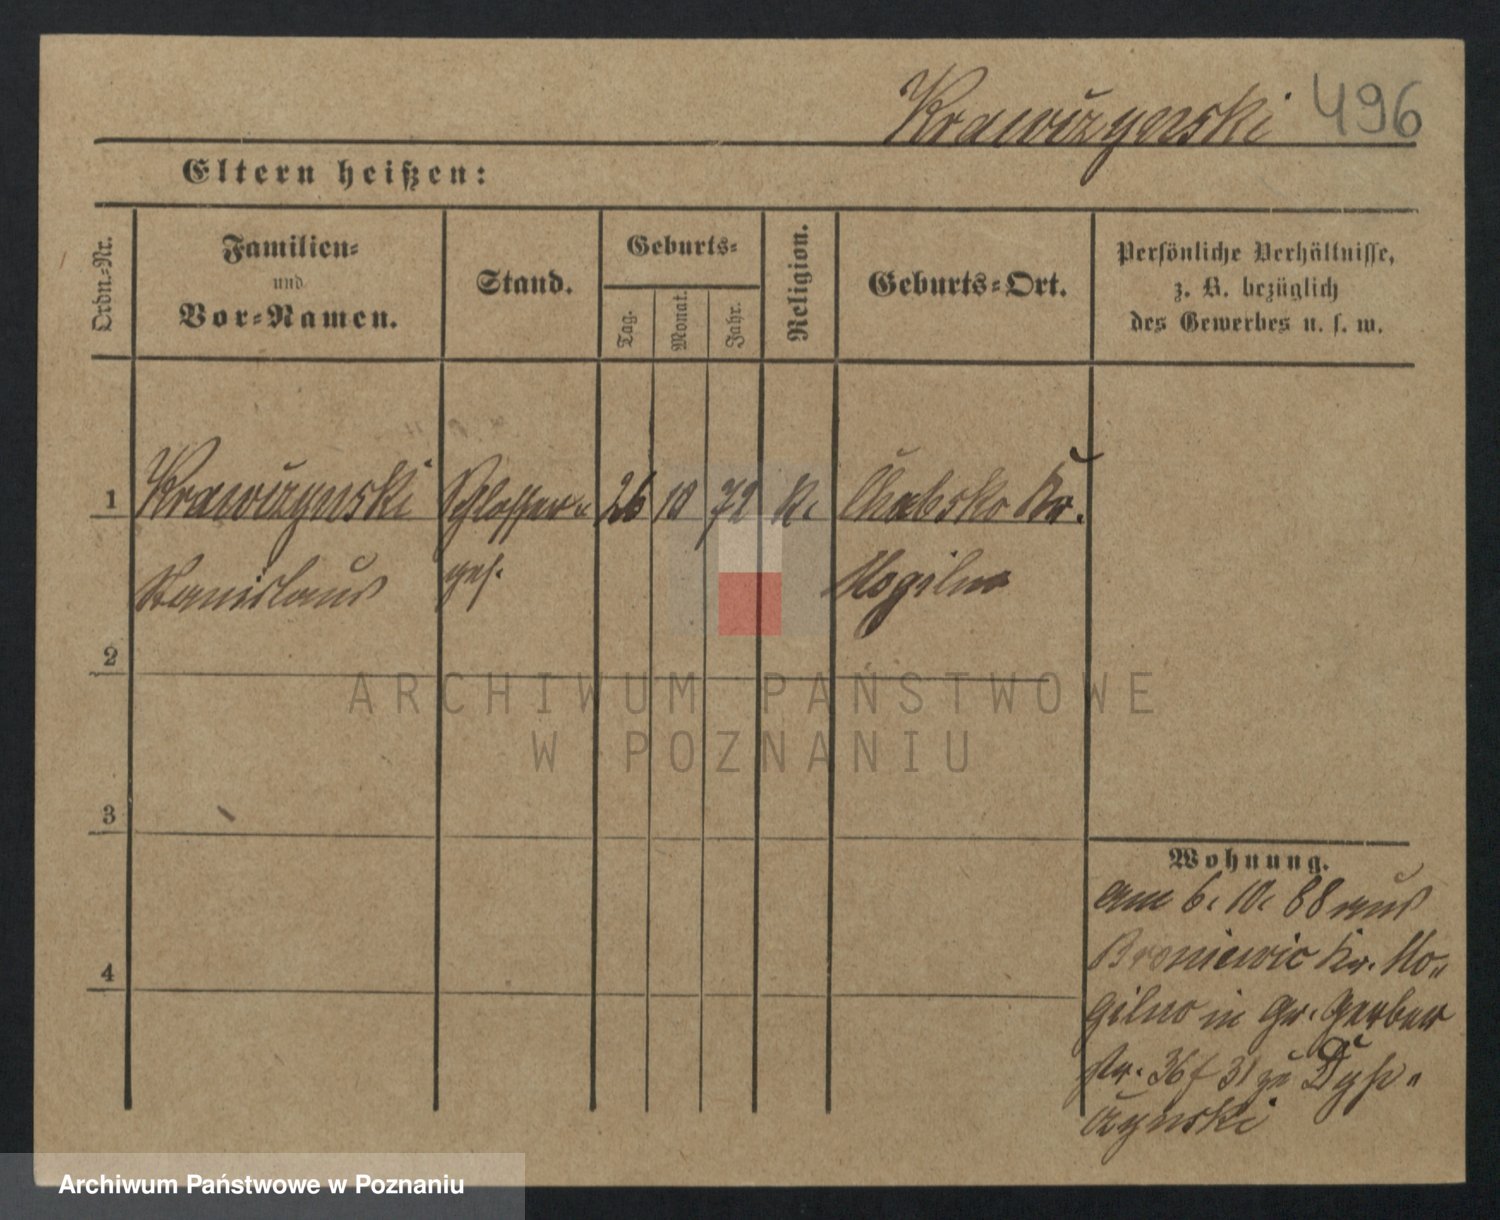 Krawczynski 496
Eltern heißen:
Ordn.-Nr.
Familien-
und
Vor-Namen.
Stand.
Geburts-
Tag.
Monat.
Jahr.
Religion.
Geburts-Ort.
Persönliche Verhältnisse,
z. B. bezüglich
des Gewerbes u. s. w.
1 Krawczynski Schlosser- 26 10 72 K. Chabsko Kr.
Stanislaus ges. Mogilno
2
3
4
ARCHIWUM PAŃSTWOWE
W POZNANIU
Wohnung.
am 6. 10. 88 aus
Broniewic Kr. Mo-
gilno in Gr. Gerber
str. 36 31 zu
czynski
Archiwum Państwowe w Poznaniu